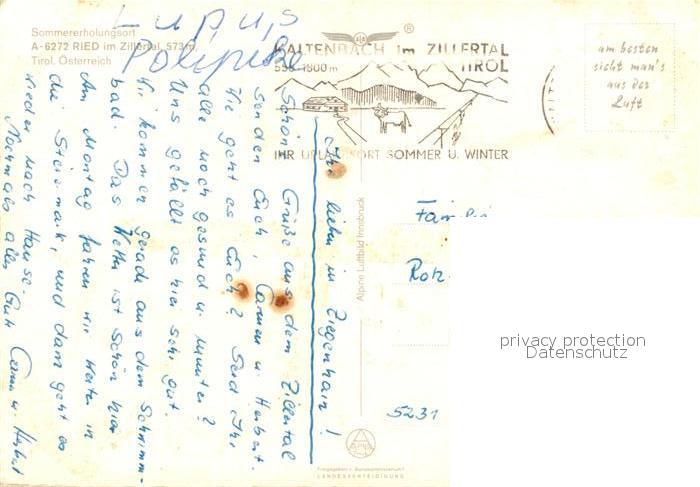 Lupus
Polipile
Sommererholungsort
A-6272 RIED im Zillertal, 573 m,
Tirol, Österreich
®
KALTENBACH im ZILLERTAL
558-1800m TIROL
IHR URLAUBSORT SOMMER U. WINTER
am besten
sieht man's
aus der
Luft
Ihr lieben in Ziegenhain!
Schöne Grüße aus dem Zillertal
senden Euch, Carmen u. Herbert.
Wie geht es Euch? Seid Ihr
alle noch gesund u. munter?
Uns gefällt es hier sehr gut.
Wir kommen gerade aus dem Schwimm-
bad. Das Wetter ist schön hier.
Am Montag fahren wir weiter in
die Steiermark, und dann geht es
wieder nach Hause.
Nochmals alles Gute Carmen u. Herbert
Alpine Luftbild Innsbruck
Fam.
5231
Freigegeben v. Bundesministerium f.
LANDESVERTEIDIGUNG
privacy protection
Datenschutz